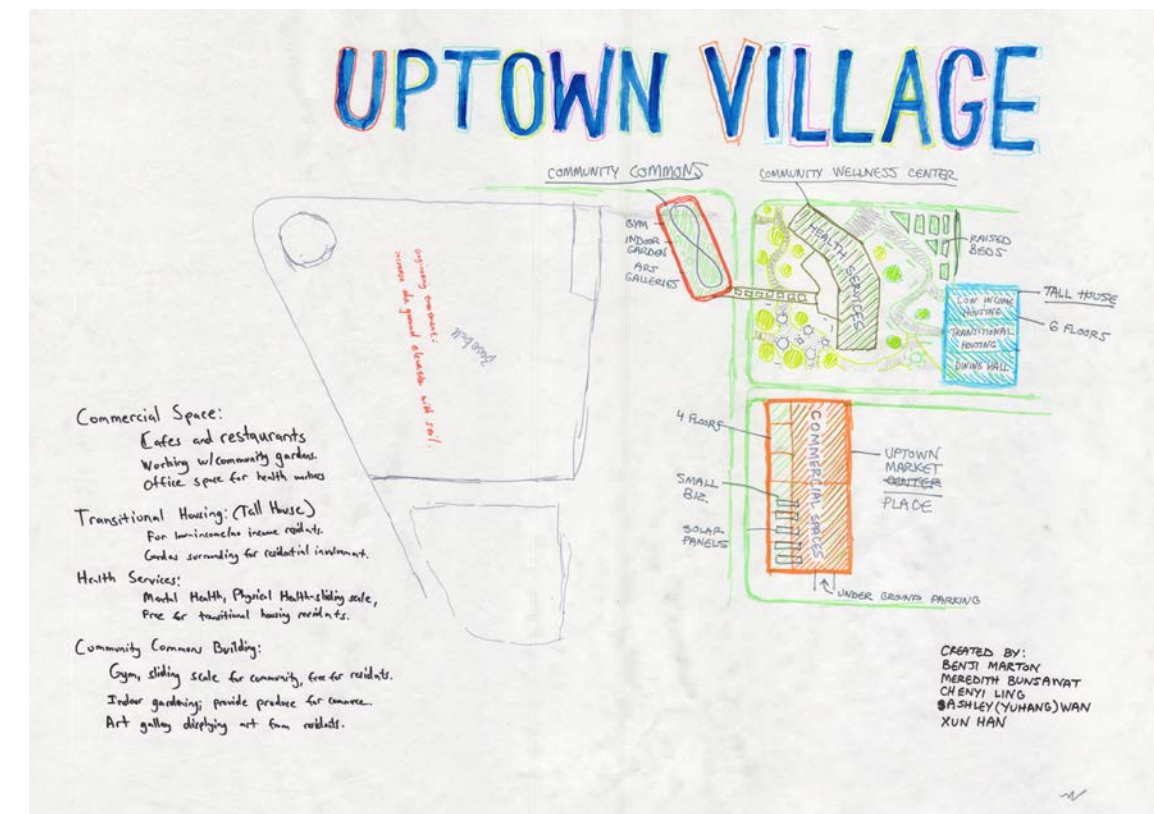 UPTOWN VILLAGE
COMMUNITY COMMONS
COMMUNITY WELLNESS CENTER
GYM
INDOOR
GARDEN
ART
GALLERIES
HEALTH SERVICES
RAISED
BEDS
TALL HOUSE
LOW INCOME
HOUSING
6 FLOORS
TRANSITIONAL
HOUSING
DINING HALL
engineering treatment:
increase the ground elevation with soil.
baseball
4 FLOORS
COMMERCIAL SPACES
UPTOWN
MARKET
CENTER
PLACE
SMALL
BIZ.
SOLAR
PANELS
UNDER GROUND PARKING
Commercial Space:
Cafes and restaurants
Working w/community gardens.
Office space for health workers
Transitional Housing: (Tall House)
For low-income/no income residents.
Gardens surrounding for residential involvement.
Health Services:
Mental Health, Physical Health-sliding scale,
Free for transitional housing residents.
Community Commons Building:
Gym, sliding scale for community, free for residents.
Indoor gardening; provide produce for commerce.
Art gallery displaying art from residents.
CREATED BY:
BENJI MARTON
MEREDITH BUNSAWAT
CHENYI LING
ASHLEY (YUHANG) WAN
XUN HAN